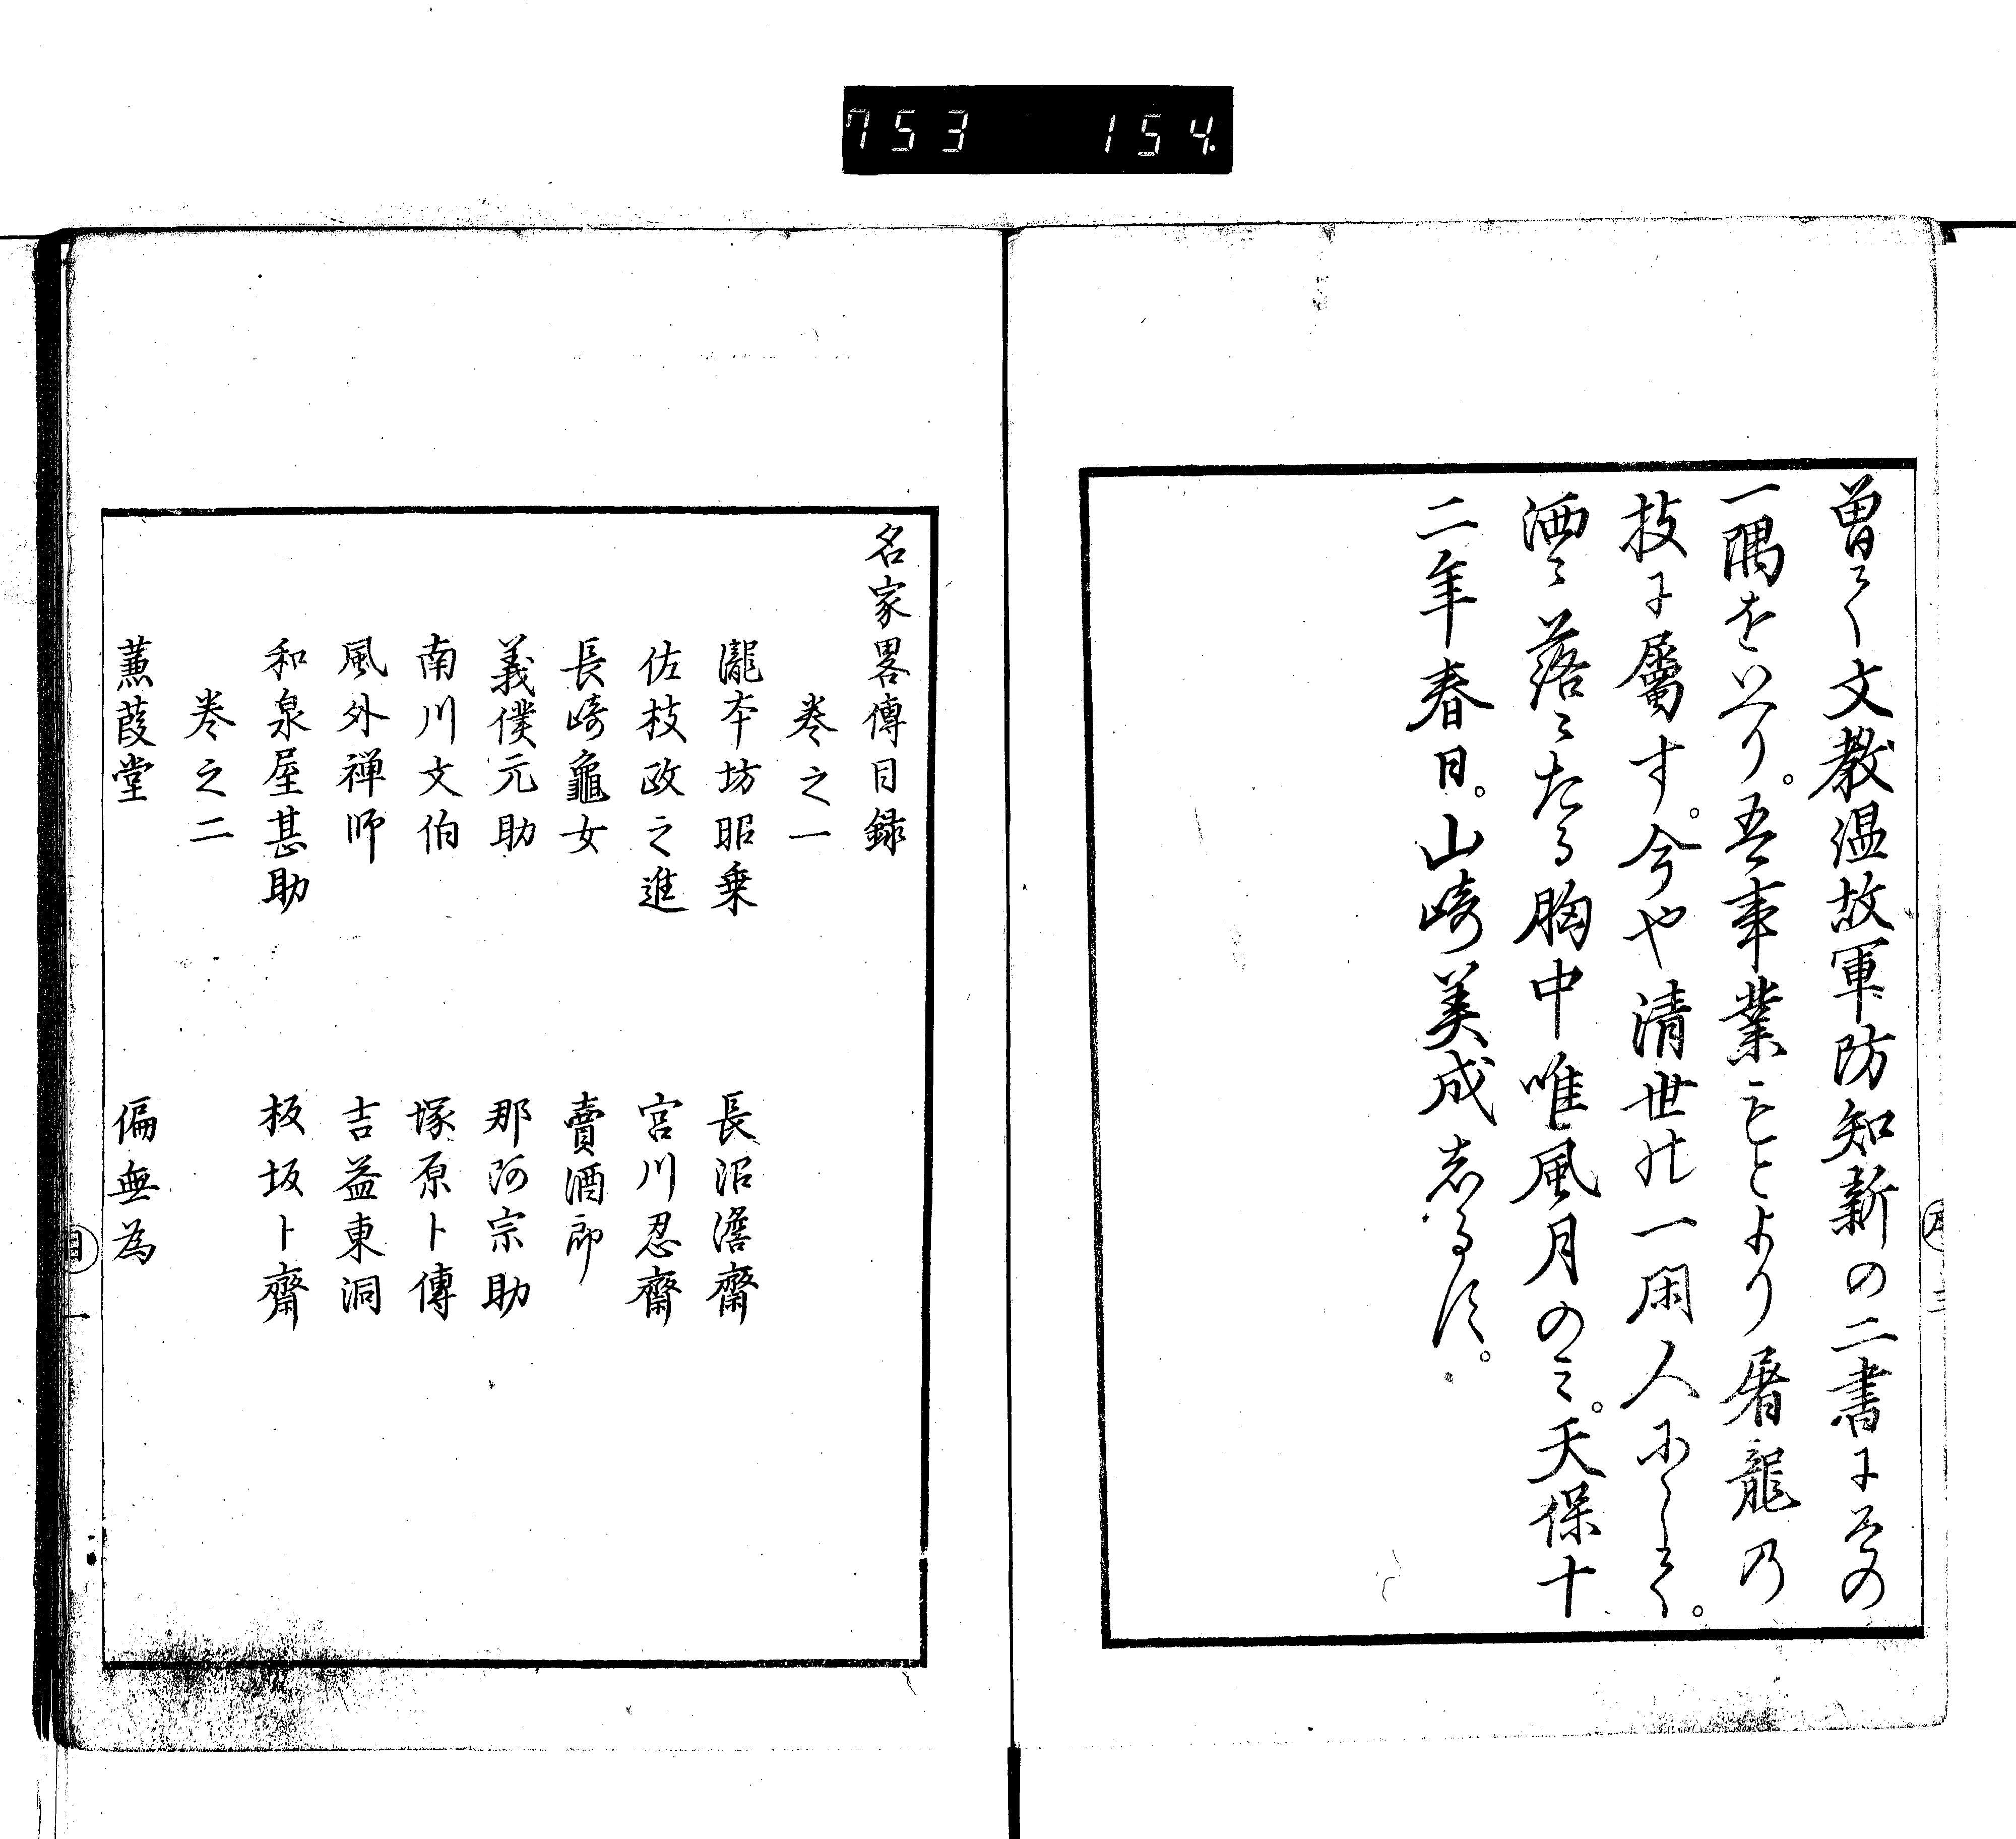 753 154
曽て文教温故軍防知新の二書にその
一隅をいへり。吾事業もとより屠龍乃
技に屬す。今や清世の一閑人にして。
洒〻落〻たる胸中唯風月のミ。天保十
二年春日。山﨑美成志るす。
序 三
名家畧傳目録
巻之一
瀧本坊昭乗 長沼澹齋
佐枝政之進 宮川忍齋
長﨑龜女 賣酒郎
義僕元助 那阿宗助
南川文伯 塚原卜傳
風外禅師 吉益東洞
和泉屋甚助 板坂卜齋
巻之二
蒹葭堂 偏無為
目 一